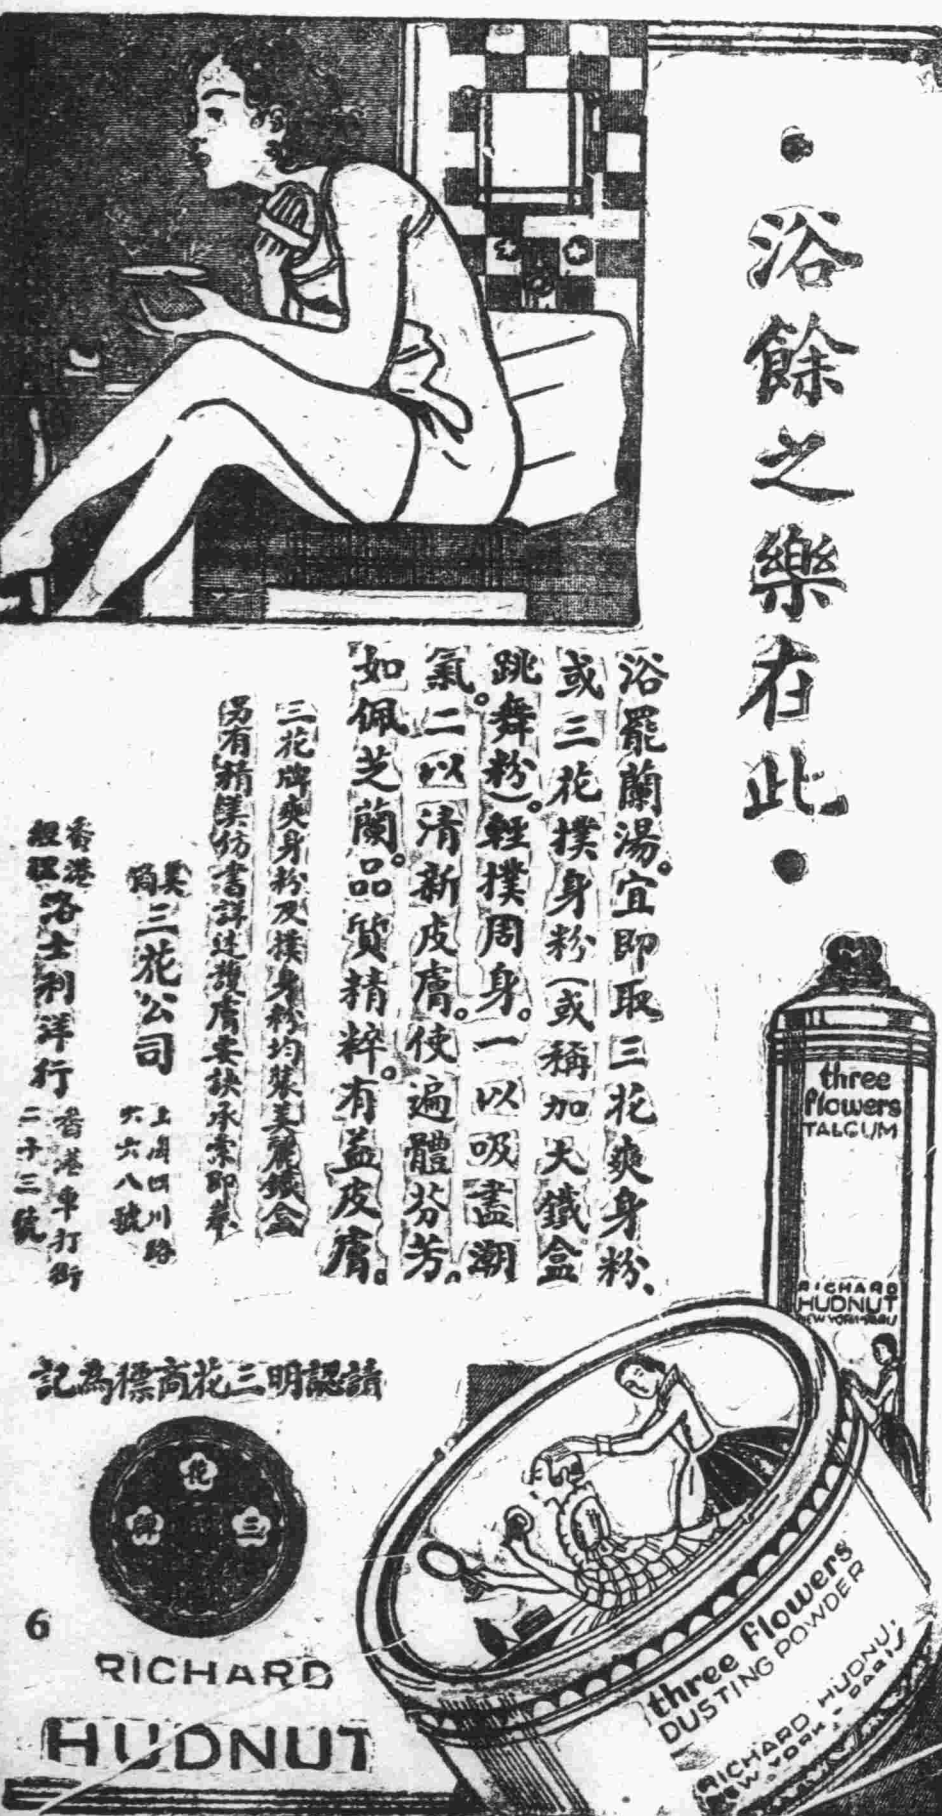 ·浴餘之樂在此·
浴罷蘭湯。宜即取三花爽身粉、
或三花撲身粉(或稱加大鐵盒
跳舞粉)。輕撲周身。一以吸盡潮
氣。二以清新皮膚。使遍體芬芳。
如佩芝蘭。品質精粹。有益皮膚。
三花牌爽身粉及撲身粉均裝美麗鐵盒
另有精美仿書詳述護膚要訣承索即奉
三花公司
上海四川路
六六八號
香港
經理
洛士利洋行
香港車打街
二十三號
three
flowers
TALCUM
RICHARD
HUDNUT
NEW YORK-PARIS
請認明三花商標為記
花
三
牌
6
RICHARD
HUDNUT
three flowers
DUSTING POWDER
RICHARD HUDNUT
NEW YORK - PARIS